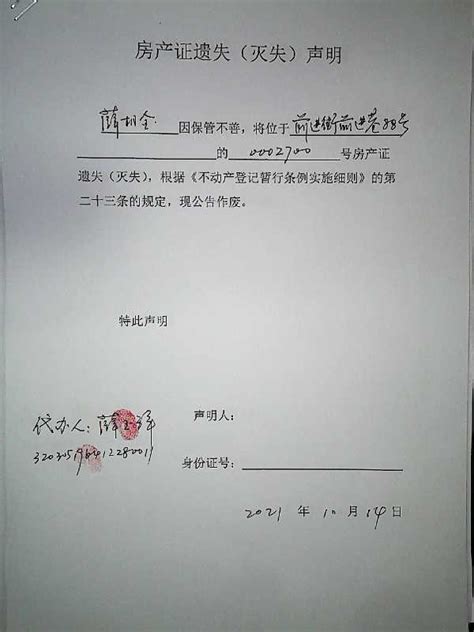 房产证遗失（灭失）声明
薛切全 因保管不善，将位于 前进街前进巷88号
的 0002700 号房产证
遗失（灭失），根据《不动产登记暂行条例实施细则》的第
二十三条的规定，现公告作废。
特此声明
声明人：
代办人：薛 祥
身份证号：
2021 年 10 月 14 日